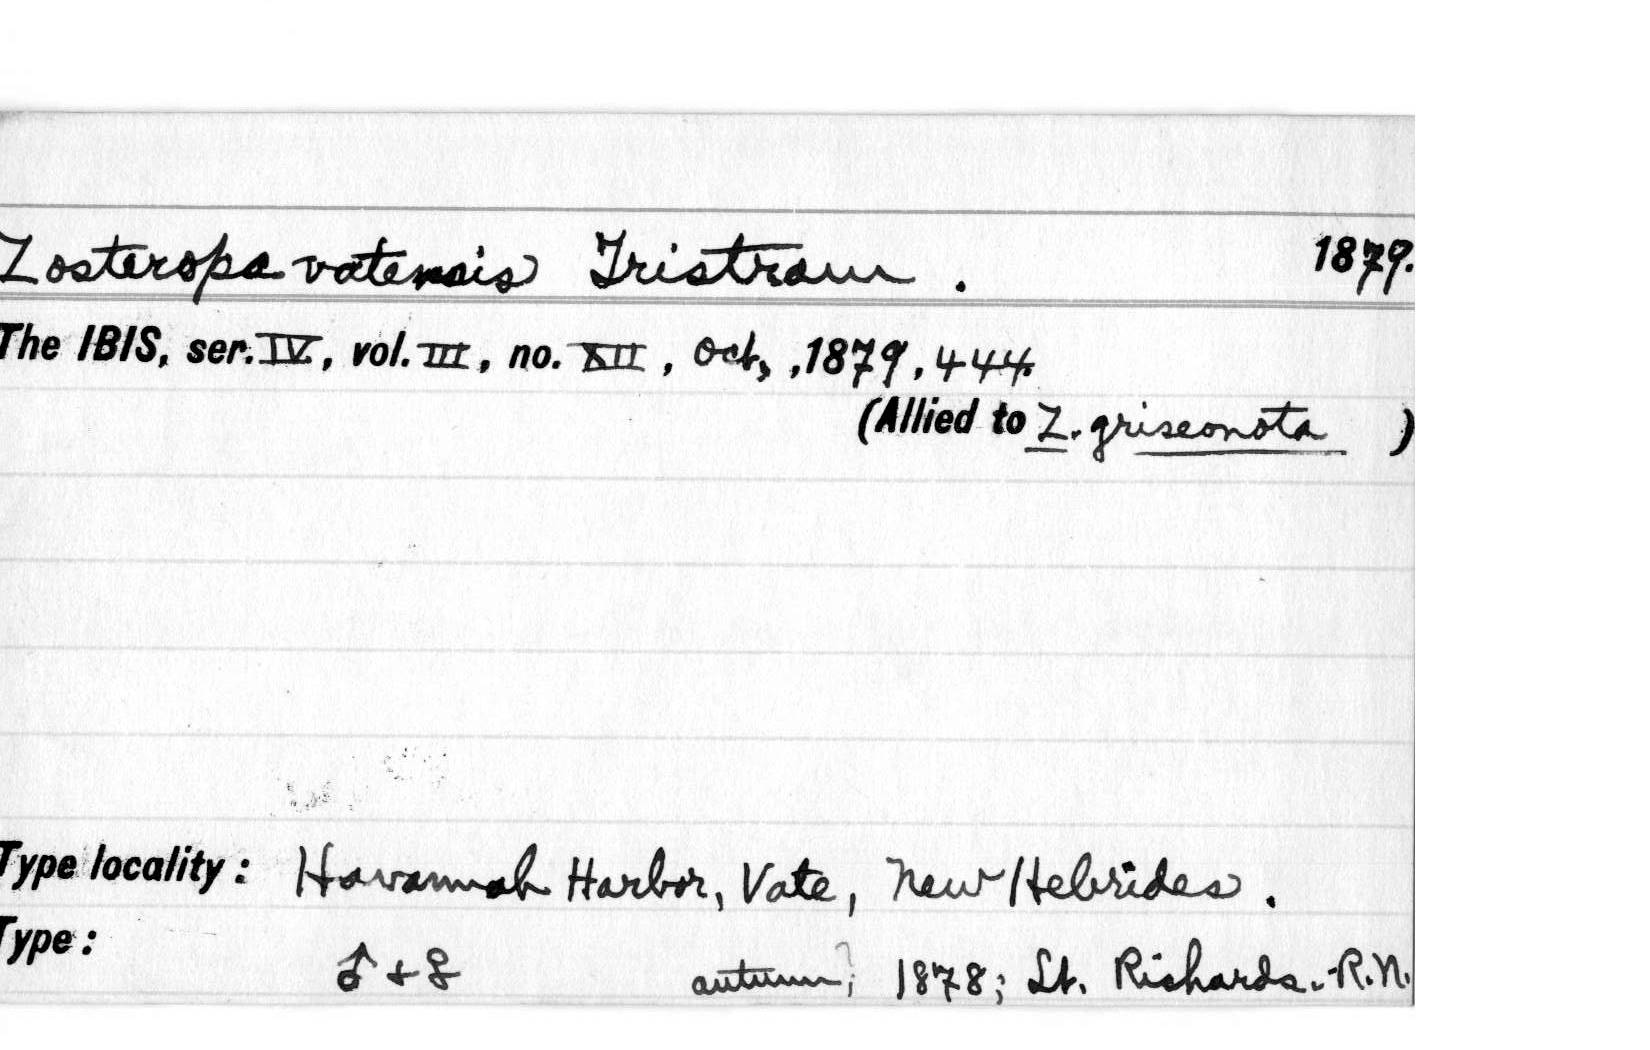 Zosteropa vatensis Tristram . 1879.
The IBIS, ser. IV, vol. III, no. XII, Oct, ,1879, 444.
(Allied to Z. griseonota )
Type locality : Havannah Harbor, Vate, New Hebrides .
Type :
♂ + ♀ autumn?; 1878; Lt. Richards.-R.N.